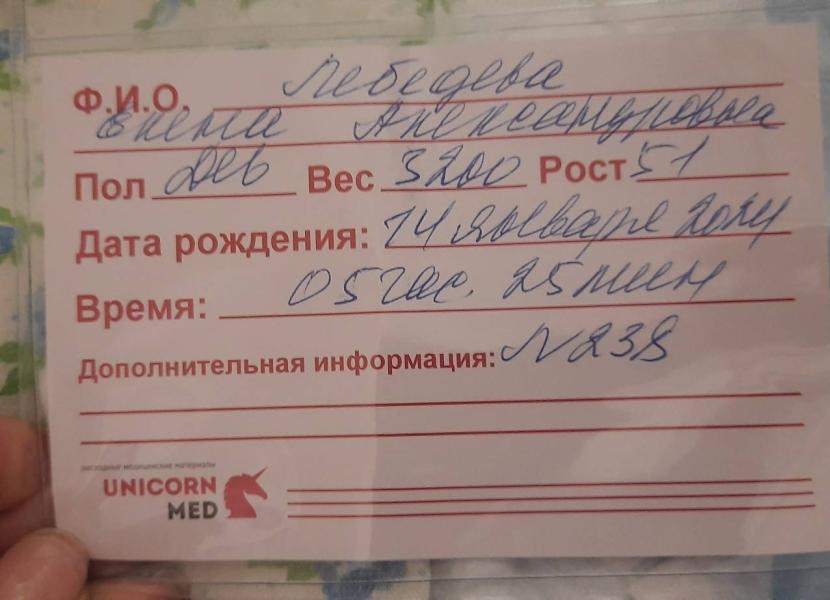 Ф.И.О. Лебедева
Елена Александровна
Пол дев Вес 3200 Рост 51
Дата рождения: 14 января 2024
Время: 05 час. 25 мин
Дополнительная информация: N 238
расходные медицинские материалы
UNICORN
MED